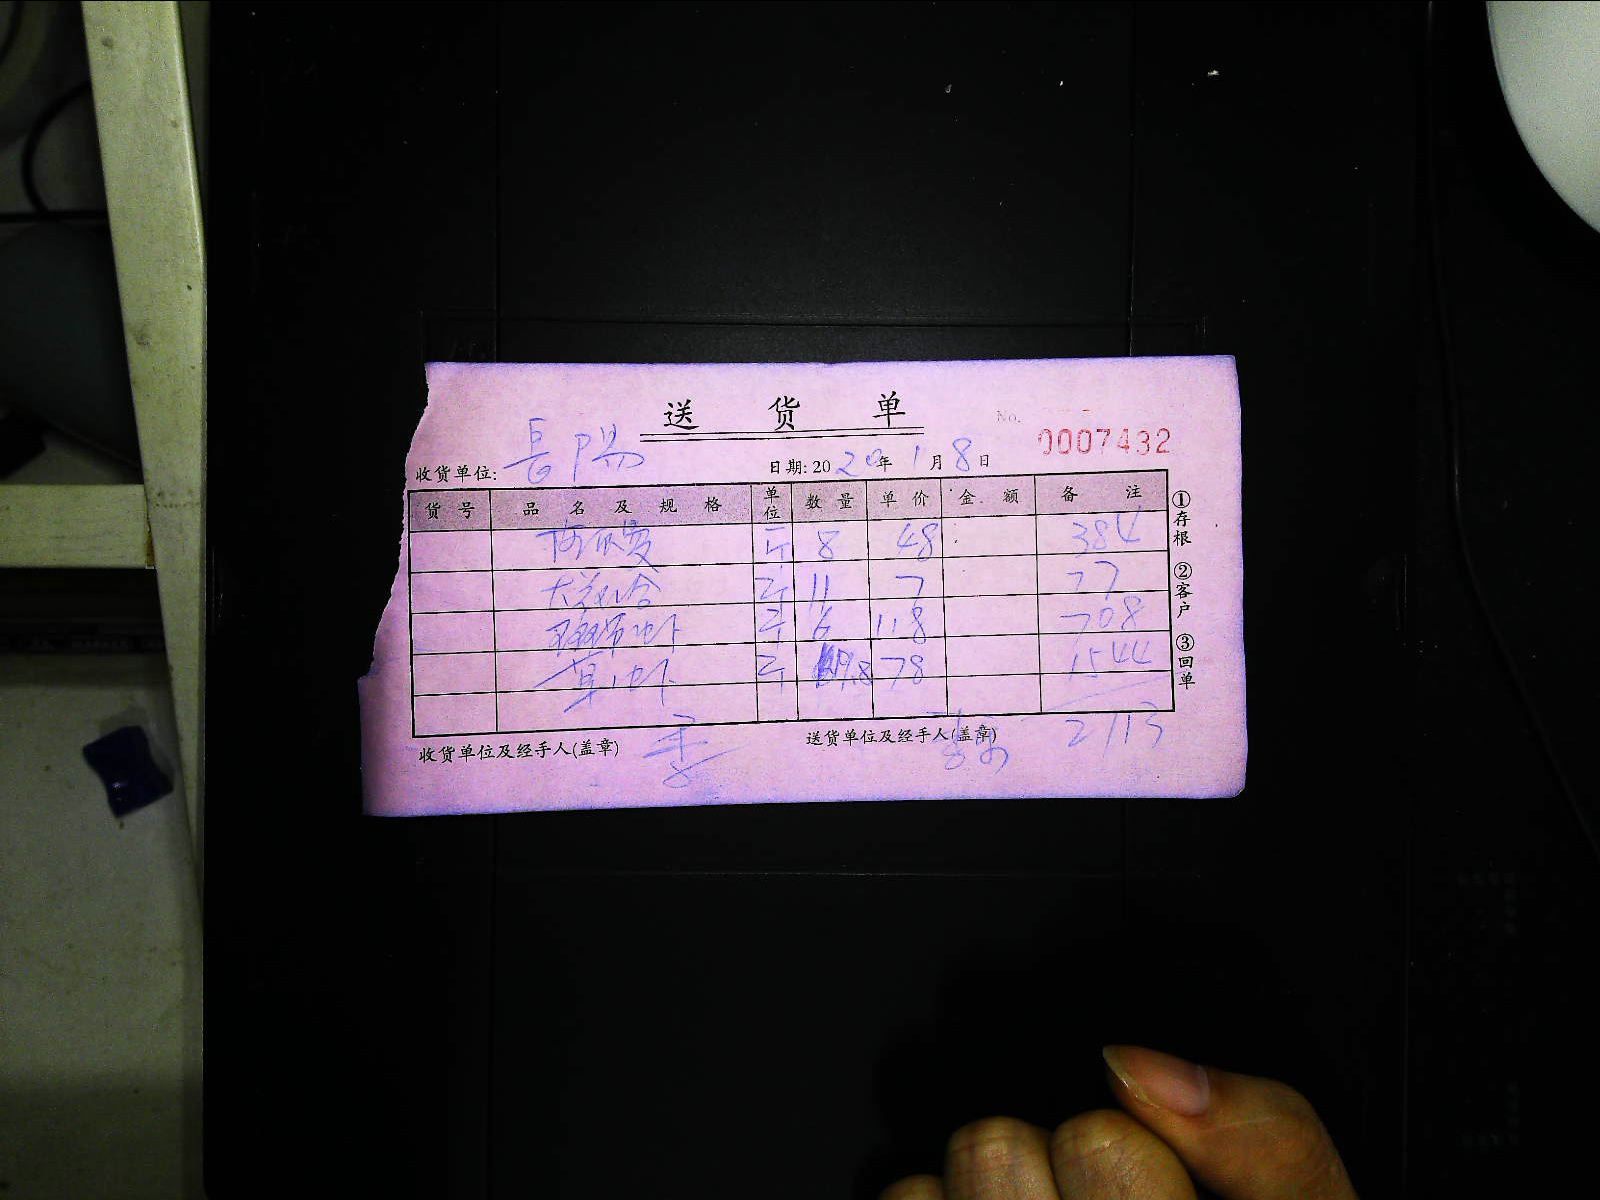 送 货 单
No. 0007432
收货单位: 長陽 日期: 2020年1月8日
货 号 品 名 及 规 格 单位 数 量 单 价 金 额 备 注
斤 8 48 384
斤 11 7 77
斤 6 118 708
草虾 斤 19.8 78 1544
2113
收货单位及经手人(盖章) 送货单位及经手人(盖章)
①存根 ②客户 ③回单